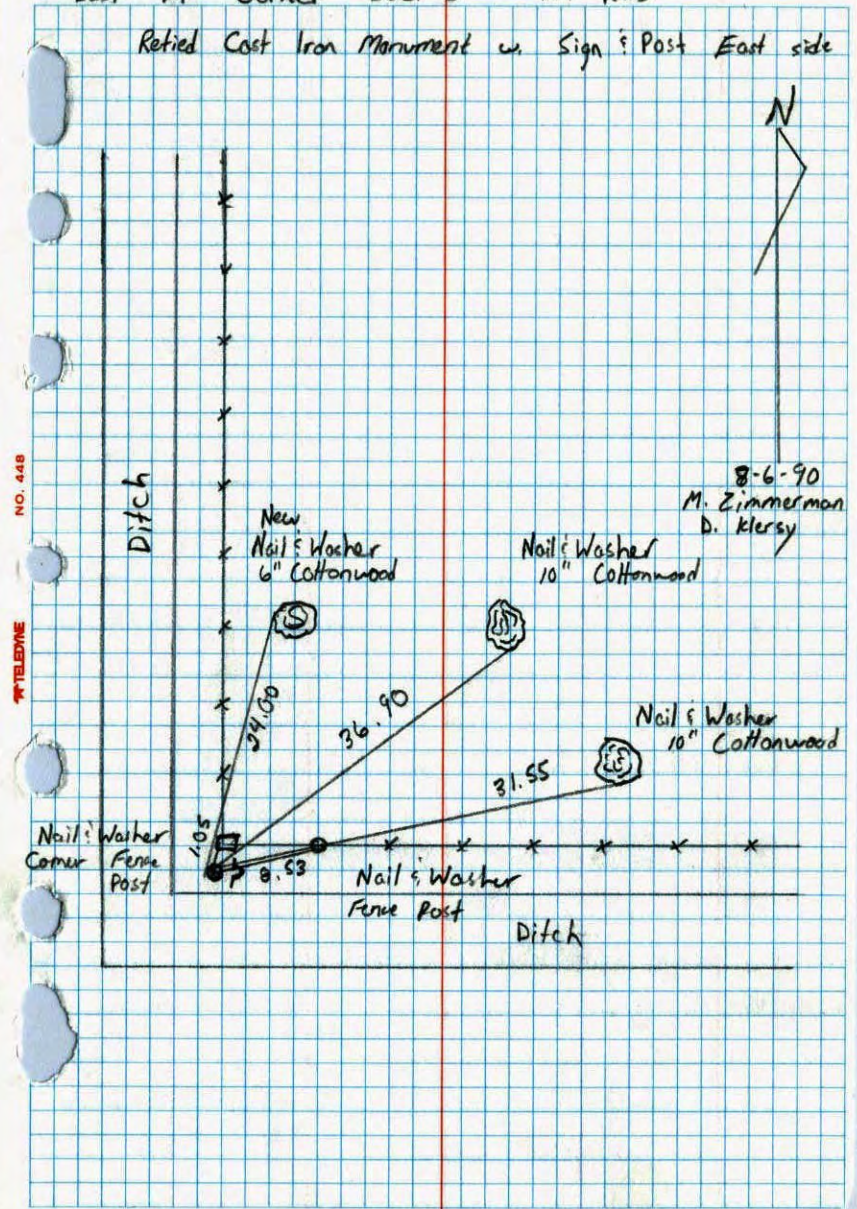 Corner
Retied Cast Iron Monument w. Sign & Post East side
N
8-6-90
M. Zimmerman
D. Klersy
NO. 448
TELEDYNE
Ditch
New
Nail & Washer
6" Cottonwood
Nail & Washer
10" Cottonwood
Nail & Washer
10" Cottonwood
24.00
36.90
31.55
1.05
8.53
Nail & Washer
Corner Fence
Post
Nail & Washer
Fence Post
Ditch